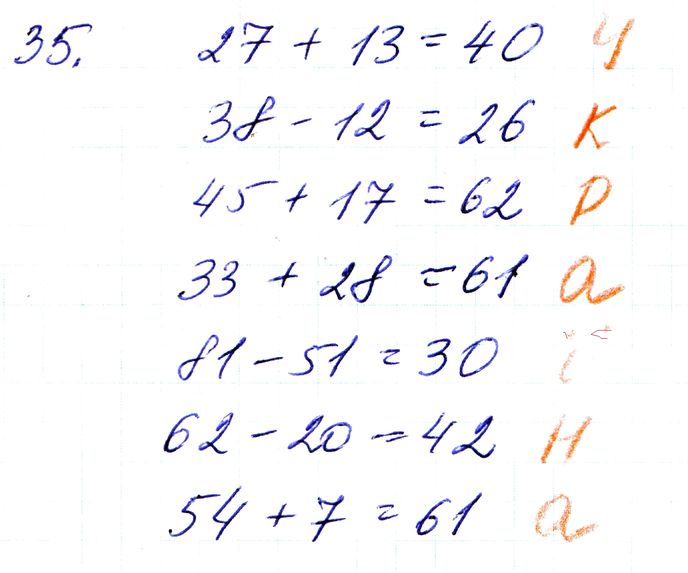 35. 27 + 13 = 40 У
38 - 12 = 26 К
45 + 17 = 62 Р
33 + 28 = 61 а
81 - 51 = 30 ї
62 - 20 = 42 Н
54 + 7 = 61 а